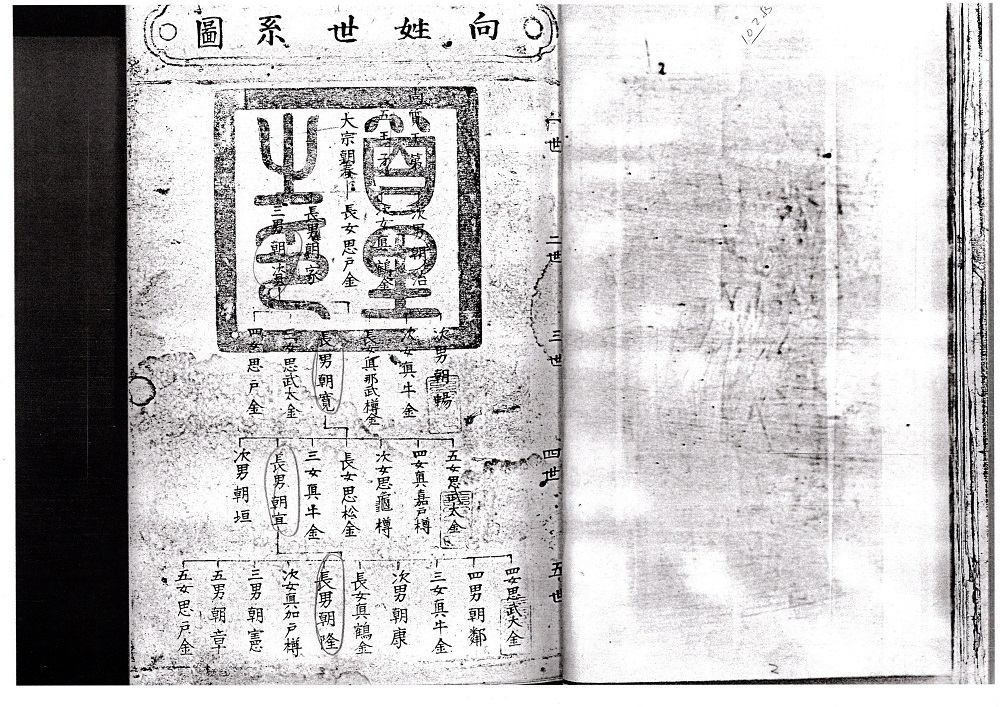 向姓世系圖
一世
大宗朝春
二世
次男朝治
次女真鶴金
長女思戸金
長男朝家
三男朝
三世
次男朝暢
次女真牛金
長女真那武樽金
長男朝寛
女思武太金
四女思戸金
四世
五女思武太金
四女真嘉戸樽
次女思龜樽
長女思松金
三女真牛金
長男朝宜
次男朝垣
五世
四女思武太金
四男朝鄰
三女真牛金
次男朝康
長女真鶴金
長男朝隆
次女真加戸樽
三男朝憲
五男朝章
五女思戸金
首里之印
2
2
3